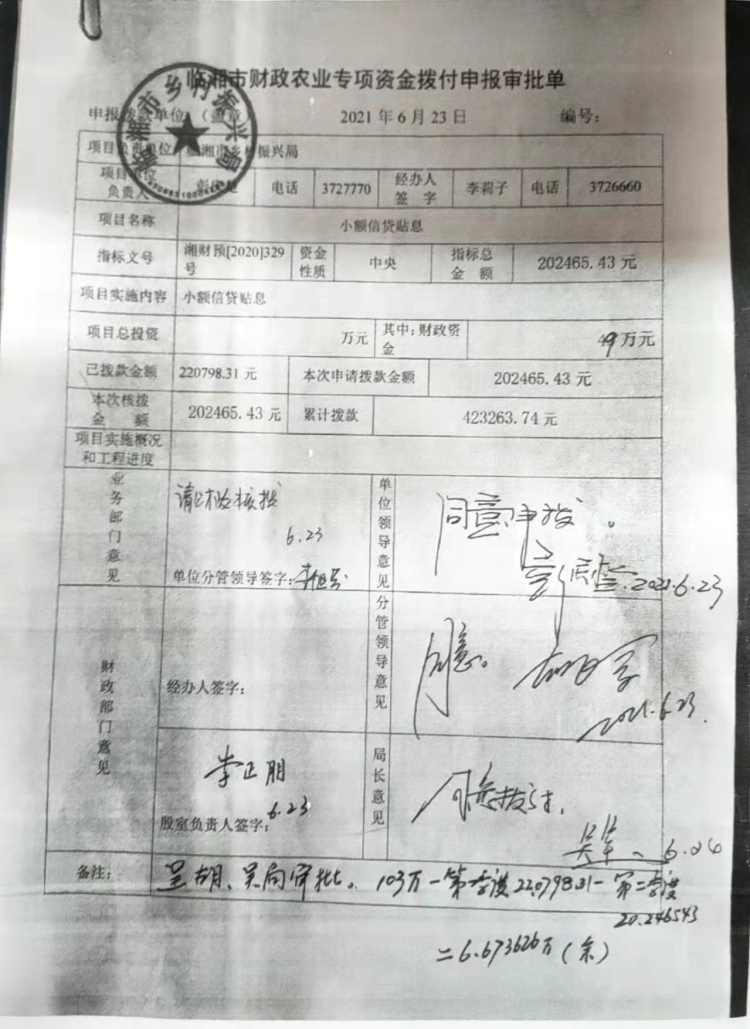 临湘市财政农业专项资金拨付申报审批单
申报拨款单位:(盖章 2021年6月23日 编号:
临湘市乡村振兴局
项目负责单位 临湘市乡村振兴局
项目单位负责人 电话 3727770 经办人签字 李莉子 电话 3726660
项目名称 小额信贷贴息
指标文号 湘财预[2020]329号 资金性质 中央 指标总金额 202465.43元
项目实施内容 小额信贷贴息
项目总投资 万元 其中:财政资金 49万元
已拨款金额 220798.31元 本次申请拨款金额 202465.43元
本次核拨金额 202465.43元 累计拨款 423263.74元
项目实施概况和工程进度
业务部门意见 请财政核拨 单位领导意见 同意申拨。
6.23
单位分管领导签字: 2021.6.23
财政部门意见 分管领导意见 同意。
经办人签字:
2021.6.23.
李正明 局长意见 同意拨付.
6.23
股室负责人签字:
6.24
备注: 呈胡、吴局审批。103万-第一季度220798.31-第二季度
20.246543
=6.673626万(余)